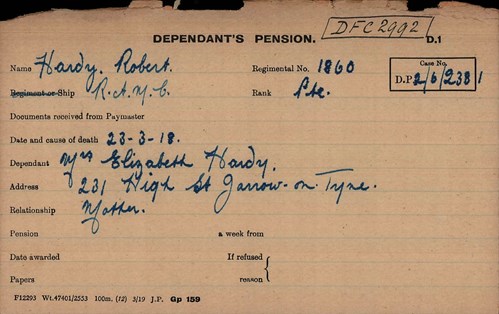 DFC2992
DEPENDANT'S PENSION. D.1
Name Hardy. Robert. Regimental No. 1860 Case No.
Regiment or Ship R.A.M.C. Rank Pte. D.P 2/6/238 1
Documents received from Paymaster
Date and cause of death 23-3-18.
Dependant Mrs Elizabeth Hardy.
Address 231 High St Jarrow-on-Tyne.
Relationship Mother.
Pension a week from
Date awarded If refused
Papers reason
F12293 Wt.47401/2553 100m. (12) 3/19 J.P. Gp 159